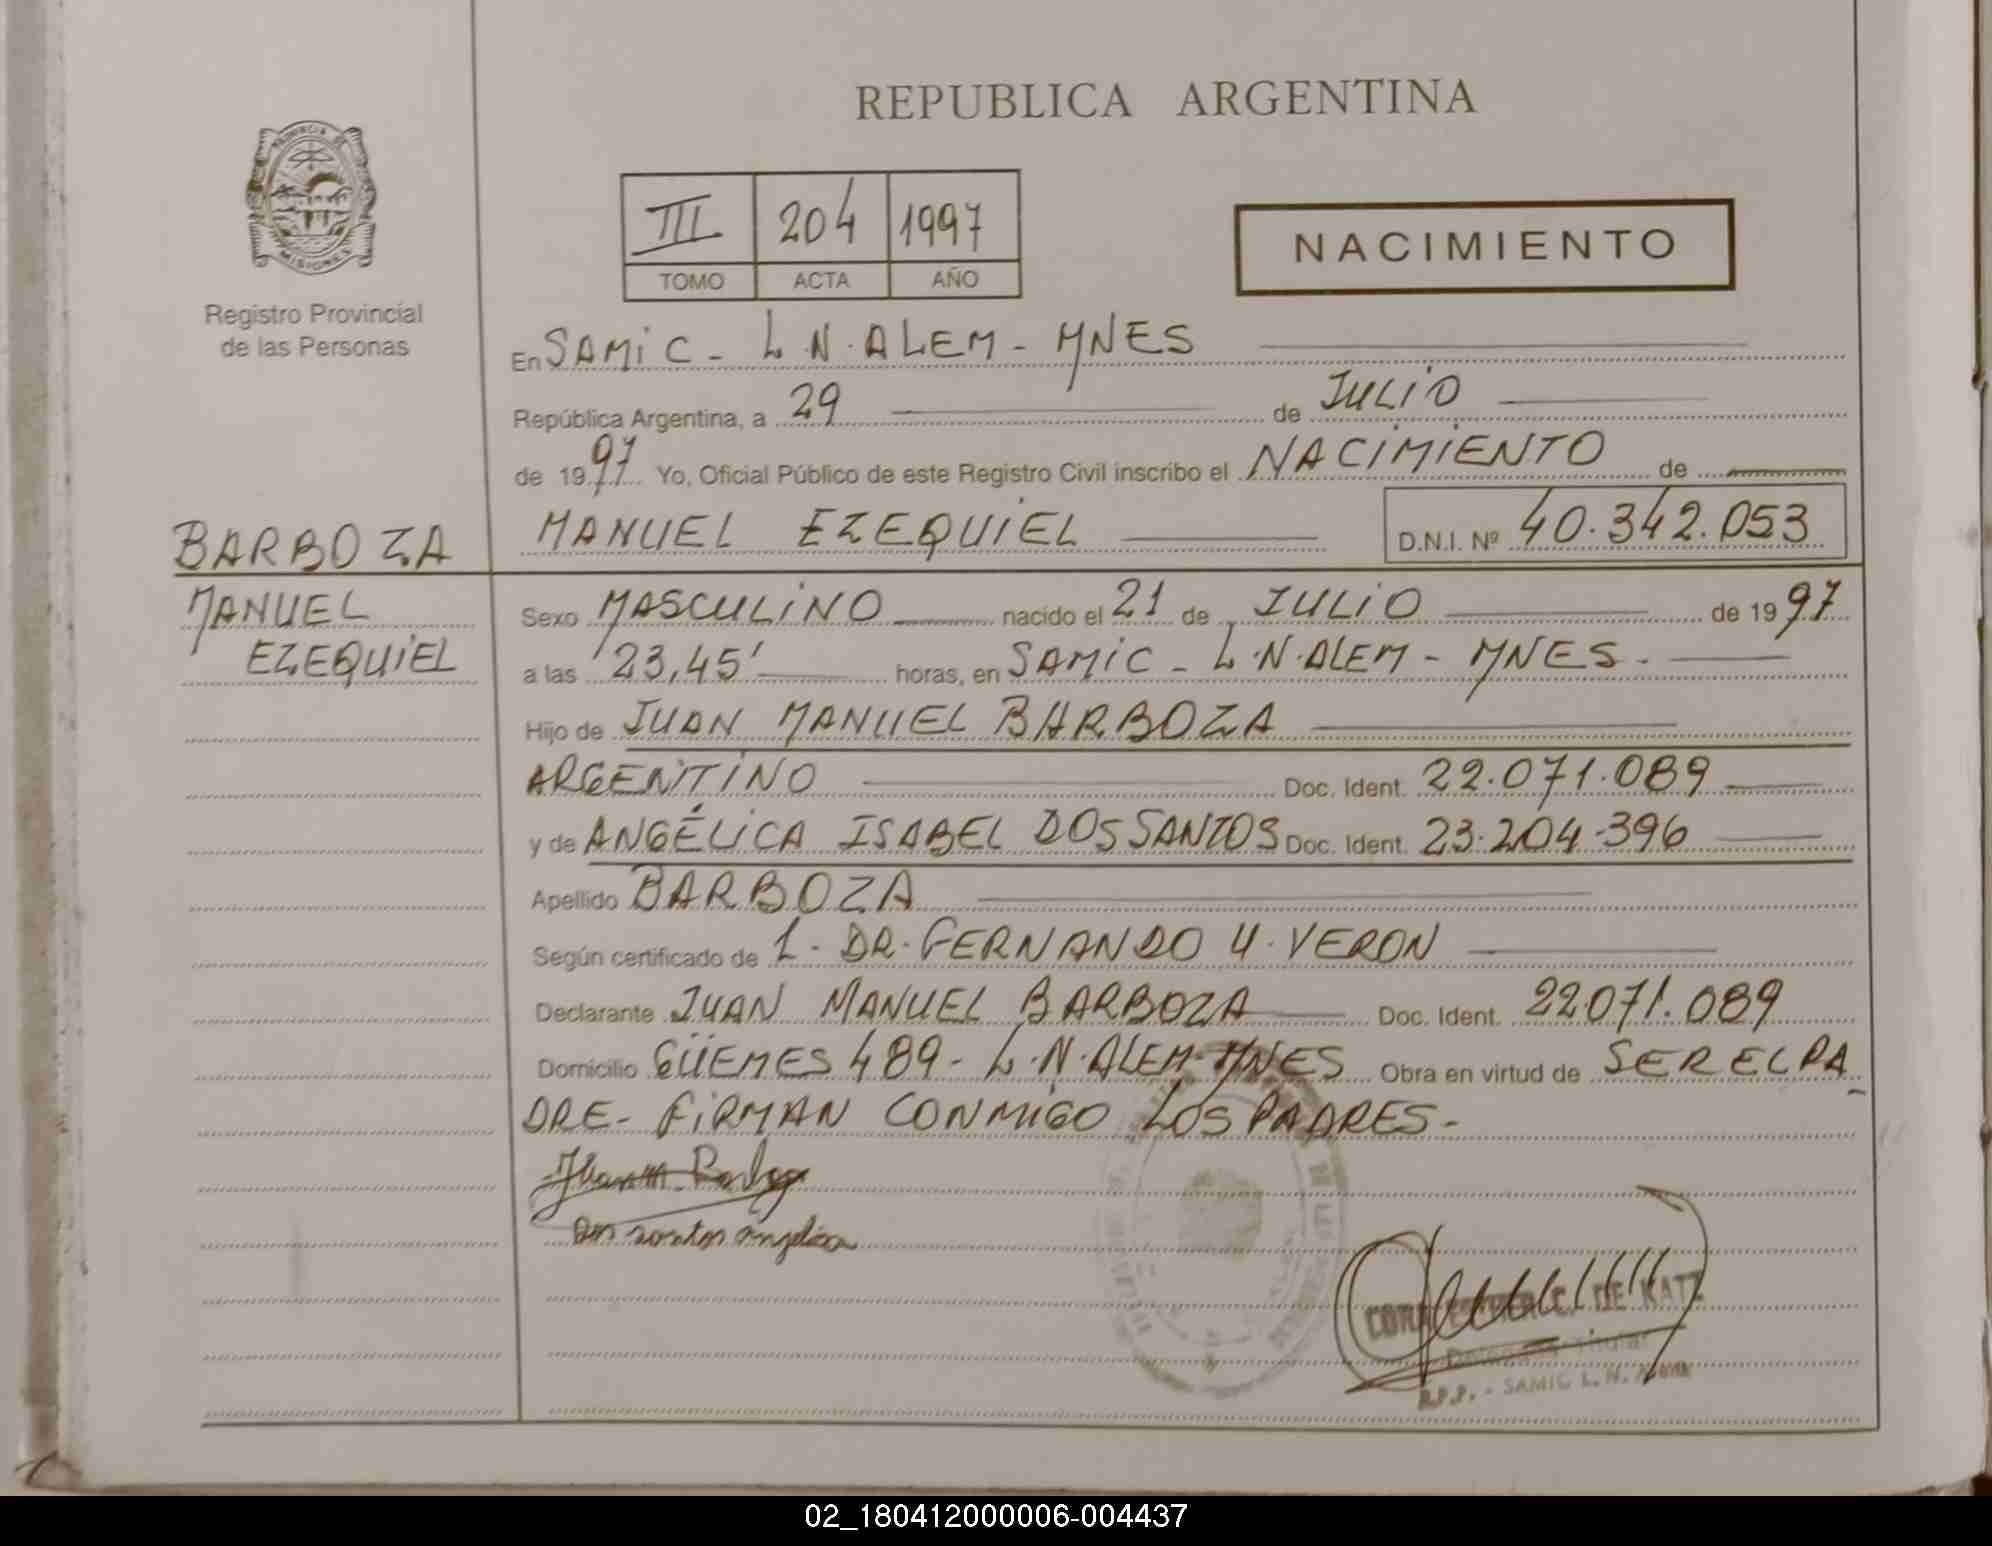 REPUBLICA ARGENTINA
PROVINCIA DE
MISIONES
Registro Provincial
de las Personas
III 204 1997
TOMO ACTA AÑO
NACIMIENTO
En SAMIC - L.N. ALEM - MNES
República Argentina, a 29 de JULIO
de 1997 Yo, Oficial Público de este Registro Civil inscribo el NACIMIENTO de
BARBOZA
MANUEL EZEQUIEL D.N.I. Nº 40.342.053
MANUEL
EZEQUIEL
Sexo MASCULINO nacido el 21 de JULIO de 1997
a las 23,45' horas, en SAMIC - L.N. ALEM - MNES.
Hijo de JUAN MANUEL BARBOZA
ARGENTINO Doc. Ident. 22.071.089
y de ANGÉLICA ISABEL DOS SANTOS Doc. Ident. 23.204.396
Apellido BARBOZA
Según certificado de L. DR. FERNANDO U. VERON
Declarante JUAN MANUEL BARBOZA Doc. Ident. 22071.089
Domicilio GÜEMES 489 - L.N. ALEM - MNES Obra en virtud de SER EL PA
DRE - FIRMAN CONMIGO LOS PADRES -
Dos santos angelica
DE KATZ
Titular
R.P.P. - SAMIC L. N.
02_180412000006-004437